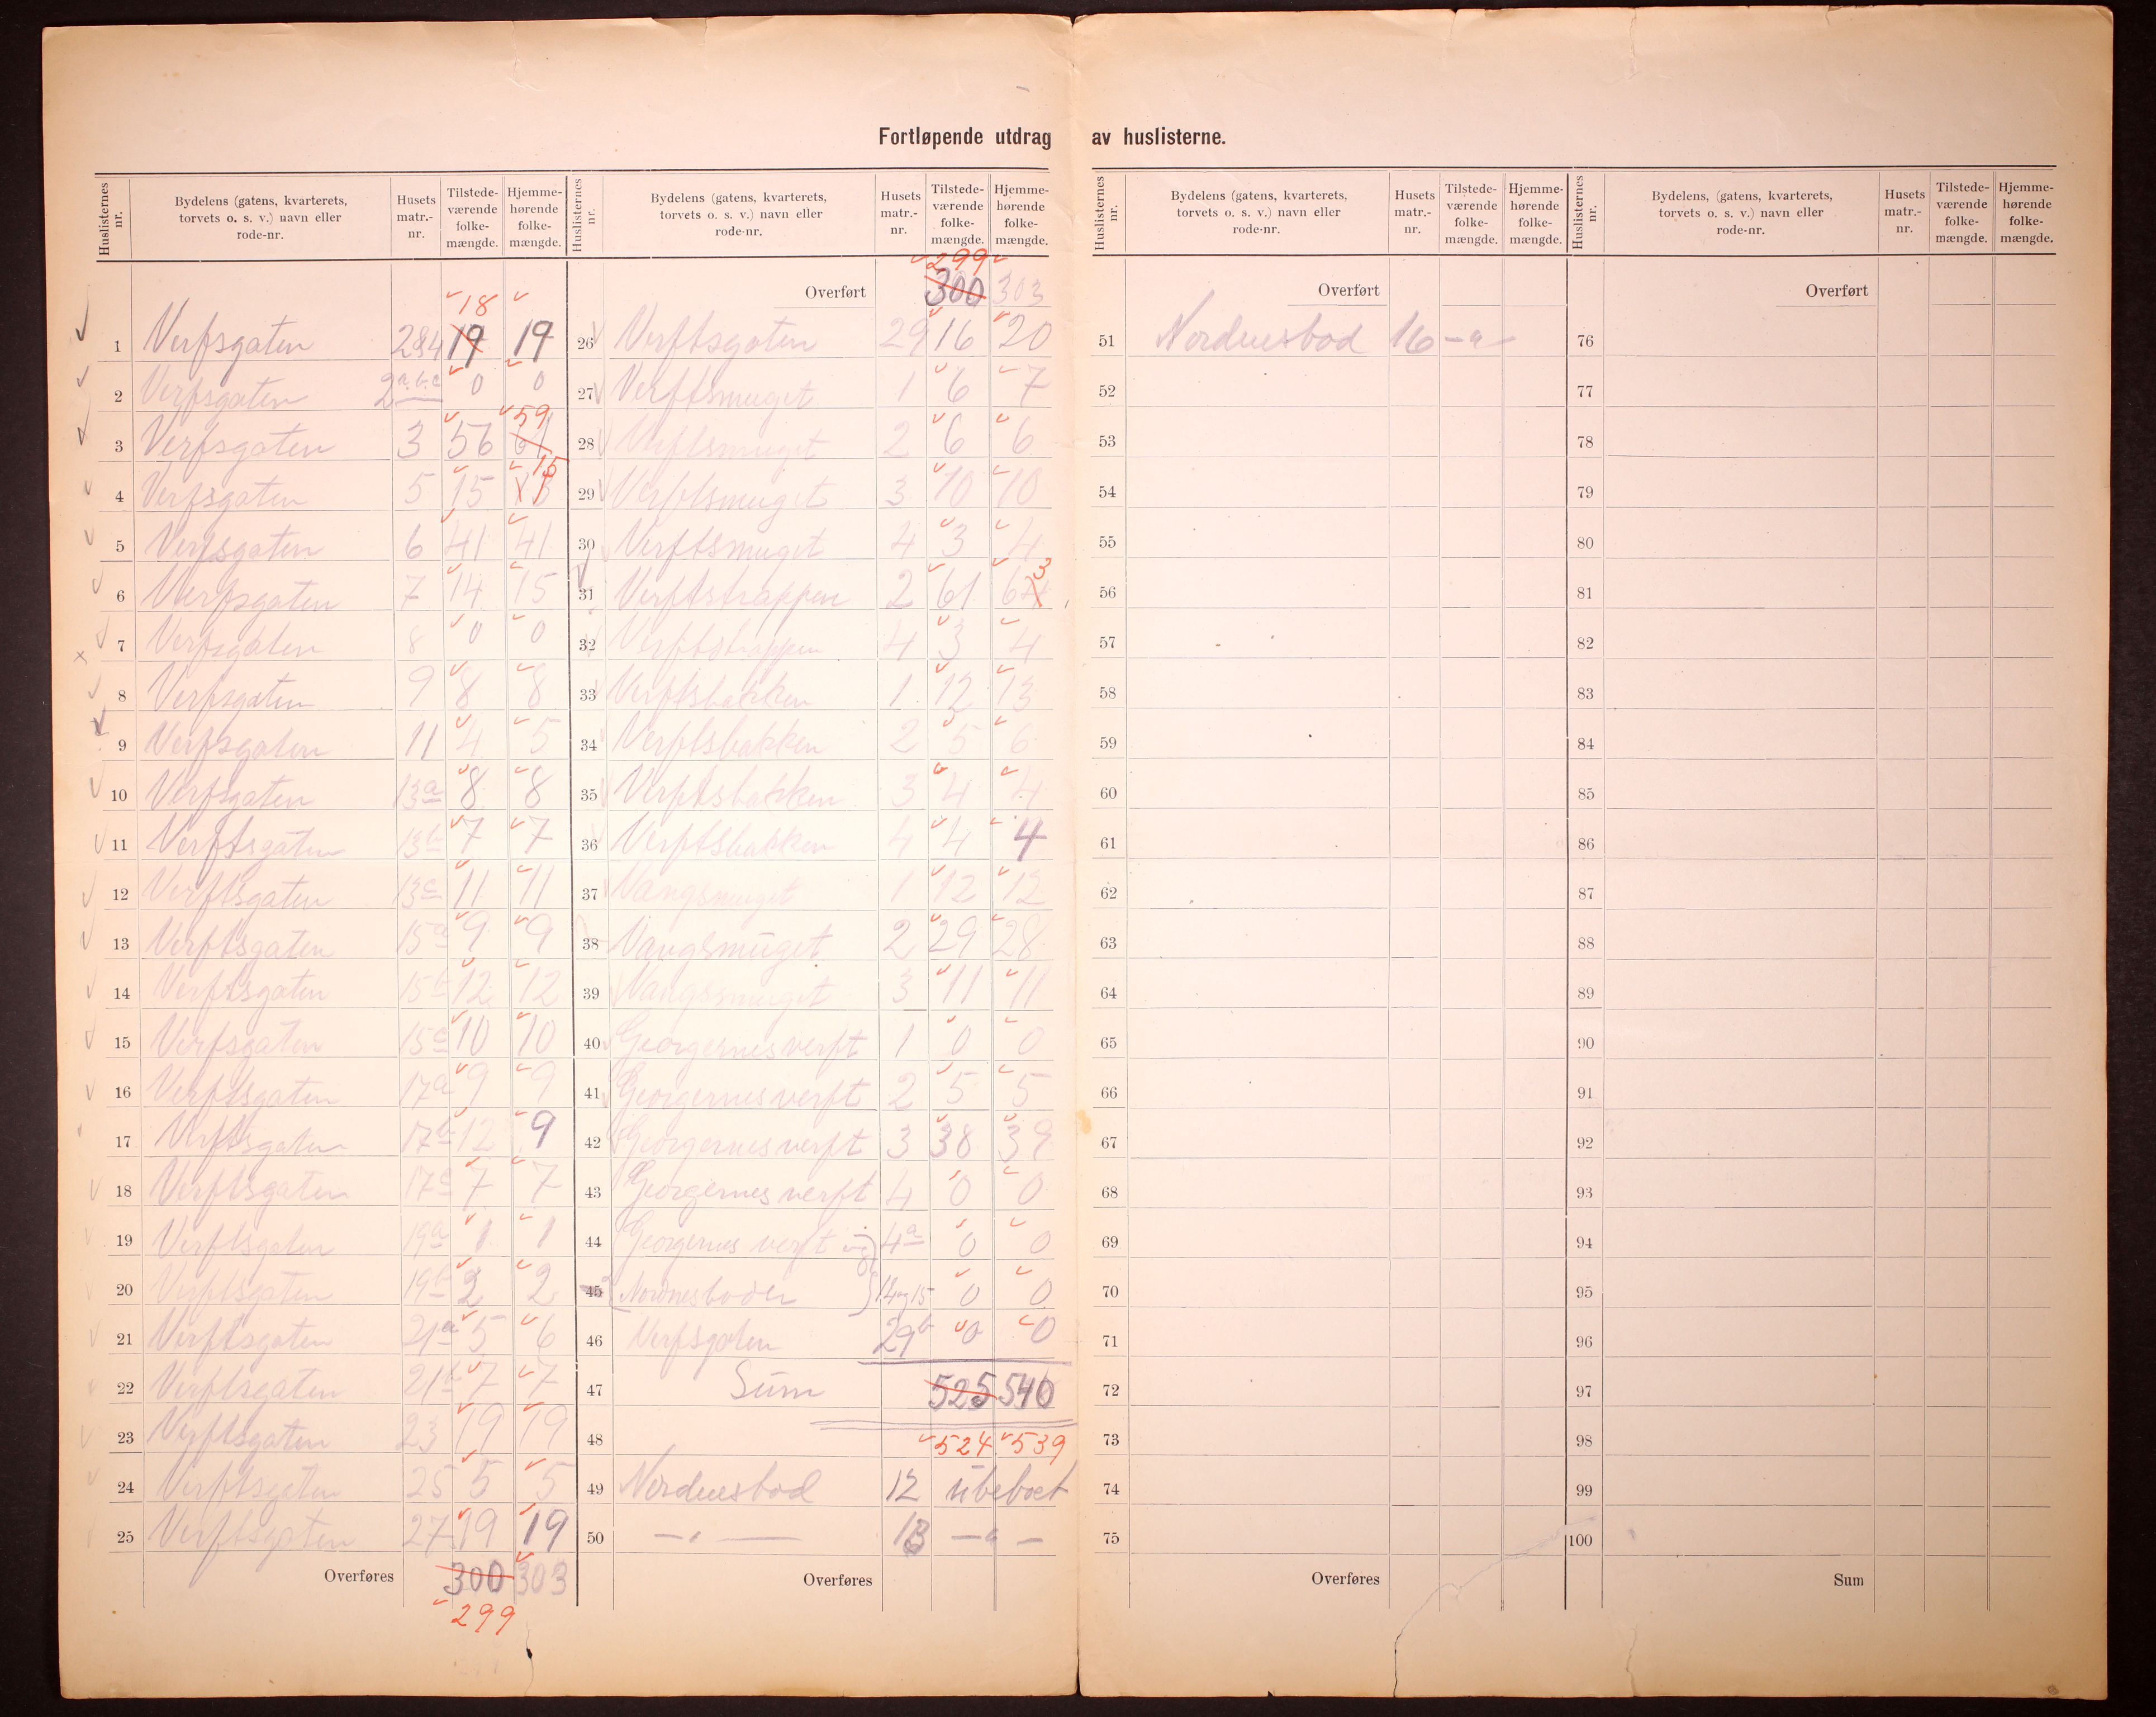 Fortløpende utdrag av huslisterne.
Huslisternes nr. | Bydelens (gatens, kvarterets, torvets o. s. v.) navn eller rode-nr. | Husets matr.-nr. | Tilstede-værende folke-mængde. | Hjemme-hørende folke-mængde.
18
1 Verfsgaten 2&4 19 19
2 Verfsgaten 2a.b.c 0 0
59
3 Verfsgaten 3 56 61
15
4 Verfsgaten 5 15
5 Verfsgaten 6 41 41
6 Verfsgaten 7 14 15
7 Verfsgaten 8 0 0
8 Verfsgaten 9 8 8
9 Verfsgaten 11 4 5
10 Verfsgaten 13a 8 8
11 Verftsgaten 13b 7 7
12 Verftsgaten 13c 11 11
13 Verftsgaten 15a 9 9
14 Verftsgaten 15b 12 12
15 Verfsgaten 15c 10 10
16 Verftsgaten 17a 9 9
17 Verftsgaten 17b 12 9
18 Verftsgaten 17c 7 7
19 Verftsgaten 19a 1 1
20 Verftsgaten 19b 2 2
21 Verftsgaten 21a 5 6
22 Verftsgaten 21b 7 7
23 Verftsgaten 23 19 19
24 Verftsgaten 25 5 5
25 Verftsgaten 27 19 19
Overføres 300 303
299
Huslisternes nr. | Bydelens (gatens, kvarterets, torvets o. s. v.) navn eller rode-nr. | Husets matr.-nr. | Tilstede-værende folke-mængde. | Hjemme-hørende folke-mængde.
299
Overført 300 303
26 Verftsgaten 29 16 20
27 Verftsmuget 1 6 7
28 Verftsmuget 2 6 6
29 Verftsmuget 3 10 10
30 Verftsmuget 4 3 4
31 Verftstrappen 2 61 64 3
32 Verftstrappen 4 3 4
33 Verftsbakken 1 12 13
34 Verftsbakken 2 5 6
35 Verftsbakken 3 4 4
36 Verftsbakken 4 4 4
37 Vangsmuget 1 12 12
38 Vangsmuget 2 29 28
39 Vangsmuget 3 11 11
40 Georgernesverft 1 0 0
41 Georgernesverft 2 5 5
42 Georgernesverft 3 38 39
43 Georgernesverft 4 0 0
44 Georgernes verft og 4a 0 0
45 Nordnesboder 14 og 15 0 0
46 Verfsgaten 29b 0 0
47 Sum 525 540
48 524 539
49 Nordnesbod 12 ubeboet
50 —"— 13 —"—
Overføres
Huslisternes nr. | Bydelens (gatens, kvarterets, torvets o. s. v.) navn eller rode-nr. | Husets matr.-nr. | Tilstede-værende folke-mængde. | Hjemme-hørende folke-mængde.
Overført
51 Nordnesbod 16 —"—
52
53
54
55
56
57
58
59
60
61
62
63
64
65
66
67
68
69
70
71
72
73
74
75
Overføres
Huslisternes nr. | Bydelens (gatens, kvarterets, torvets o. s. v.) navn eller rode-nr. | Husets matr.-nr. | Tilstede-værende folke-mængde. | Hjemme-hørende folke-mængde.
Overført
76
77
78
79
80
81
82
83
84
85
86
87
88
89
90
91
92
93
94
95
96
97
98
99
100
Sum